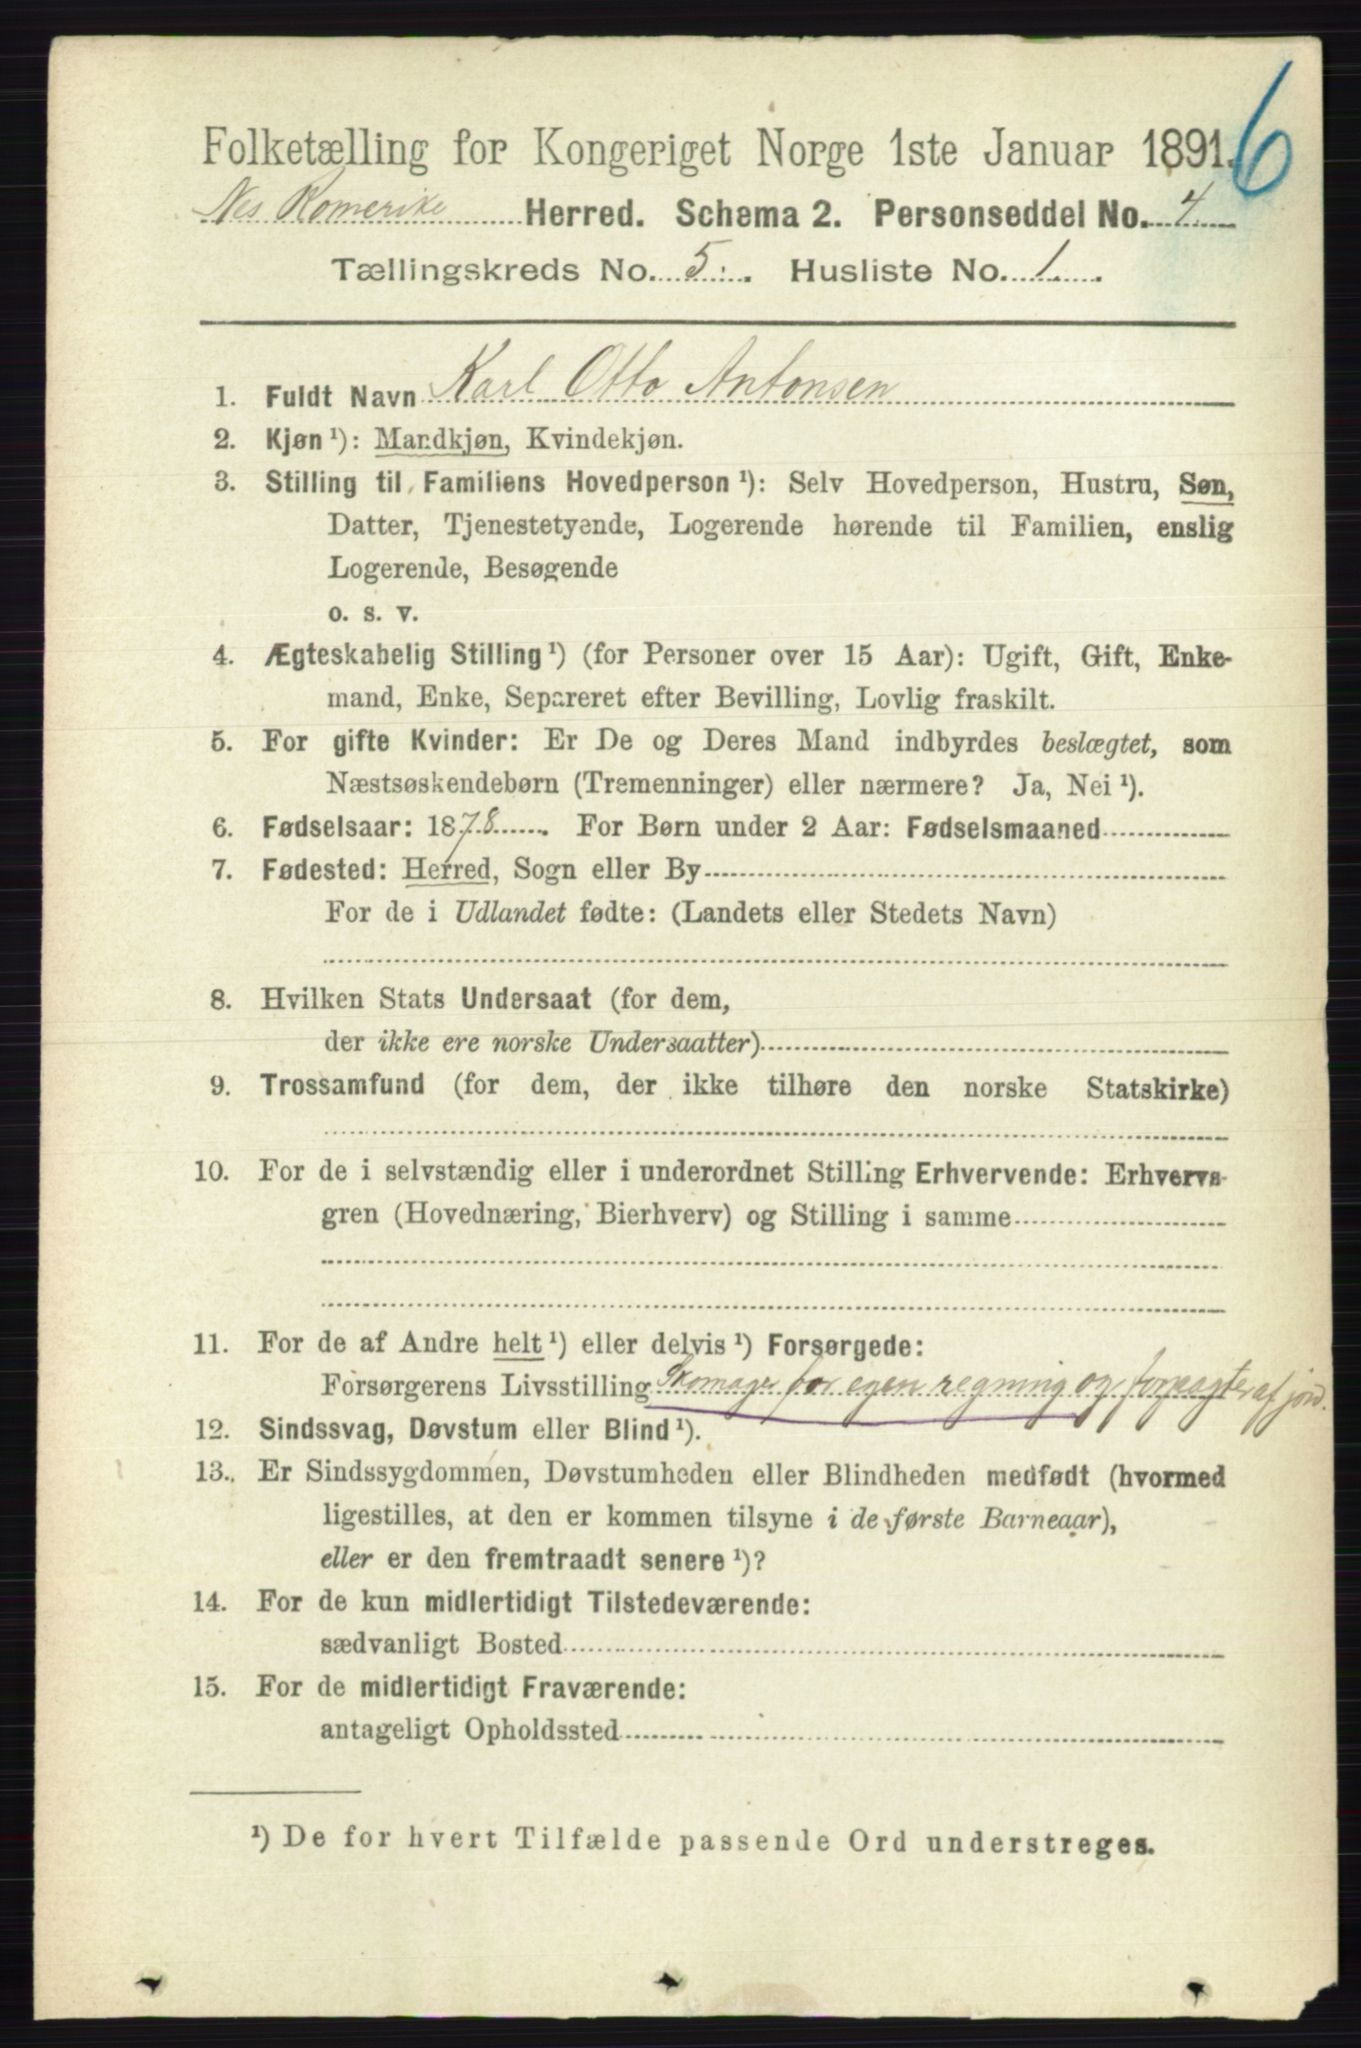 6
Folketælling for Kongeriget Norge 1ste Januar 1891.
Nes Romerike Herred. Schema 2. Personseddel No. 4
Tællingskreds No. 5. Husliste No. 1.
1. Fuldt Navn Karl Otto Antonsen
2. Kjøn ¹): Mandkjøn, Kvindekjøn.
3. Stilling til Familiens Hovedperson ¹): Selv Hovedperson, Hustru, Søn,
Datter, Tjenestetyende, Logerende hørende til Familien, enslig
Logerende, Besøgende
o. s. v.
4. Ægteskabelig Stilling ¹) (for Personer over 15 Aar): Ugift, Gift, Enke-
mand, Enke, Separeret efter Bevilling, Lovlig fraskilt.
5. For gifte Kvinder: Er De og Deres Mand indbyrdes beslægtet, som
Næstsøskendebørn (Tremenninger) eller nærmere? Ja, Nei ¹).
6. Fødselsaar: 1878. For Børn under 2 Aar: Fødselsmaaned
7. Fødested: Herred, Sogn eller By
For de i Udlandet fødte: (Landets eller Stedets Navn)
8. Hvilken Stats Undersaat (for dem,
der ikke ere norske Undersaatter)
9. Trossamfund (for dem, der ikke tilhøre den norske Statskirke)
10. For de i selvstændig eller i underordnet Stilling Erhvervende: Erhvervs-
gren (Hovednæring, Bierhverv) og Stilling i samme
11. For de af Andre helt ¹) eller delvis ¹) Forsørgede:
Forsørgerens Livsstilling Skomager for egen regning og forpagter af jord.
12. Sindssvag, Døvstum eller Blind ¹).
13. Er Sindssygdommen, Døvstumheden eller Blindheden medfødt (hvormed
ligestilles, at den er kommen tilsyne i de første Barneaar),
eller er den fremtraadt senere ¹)?
14. For de kun midlertidigt Tilstedeværende:
sædvanligt Bosted
15. For de midlertidigt Fraværende:
antageligt Opholdssted
¹) De for hvert Tilfælde passende Ord understreges.